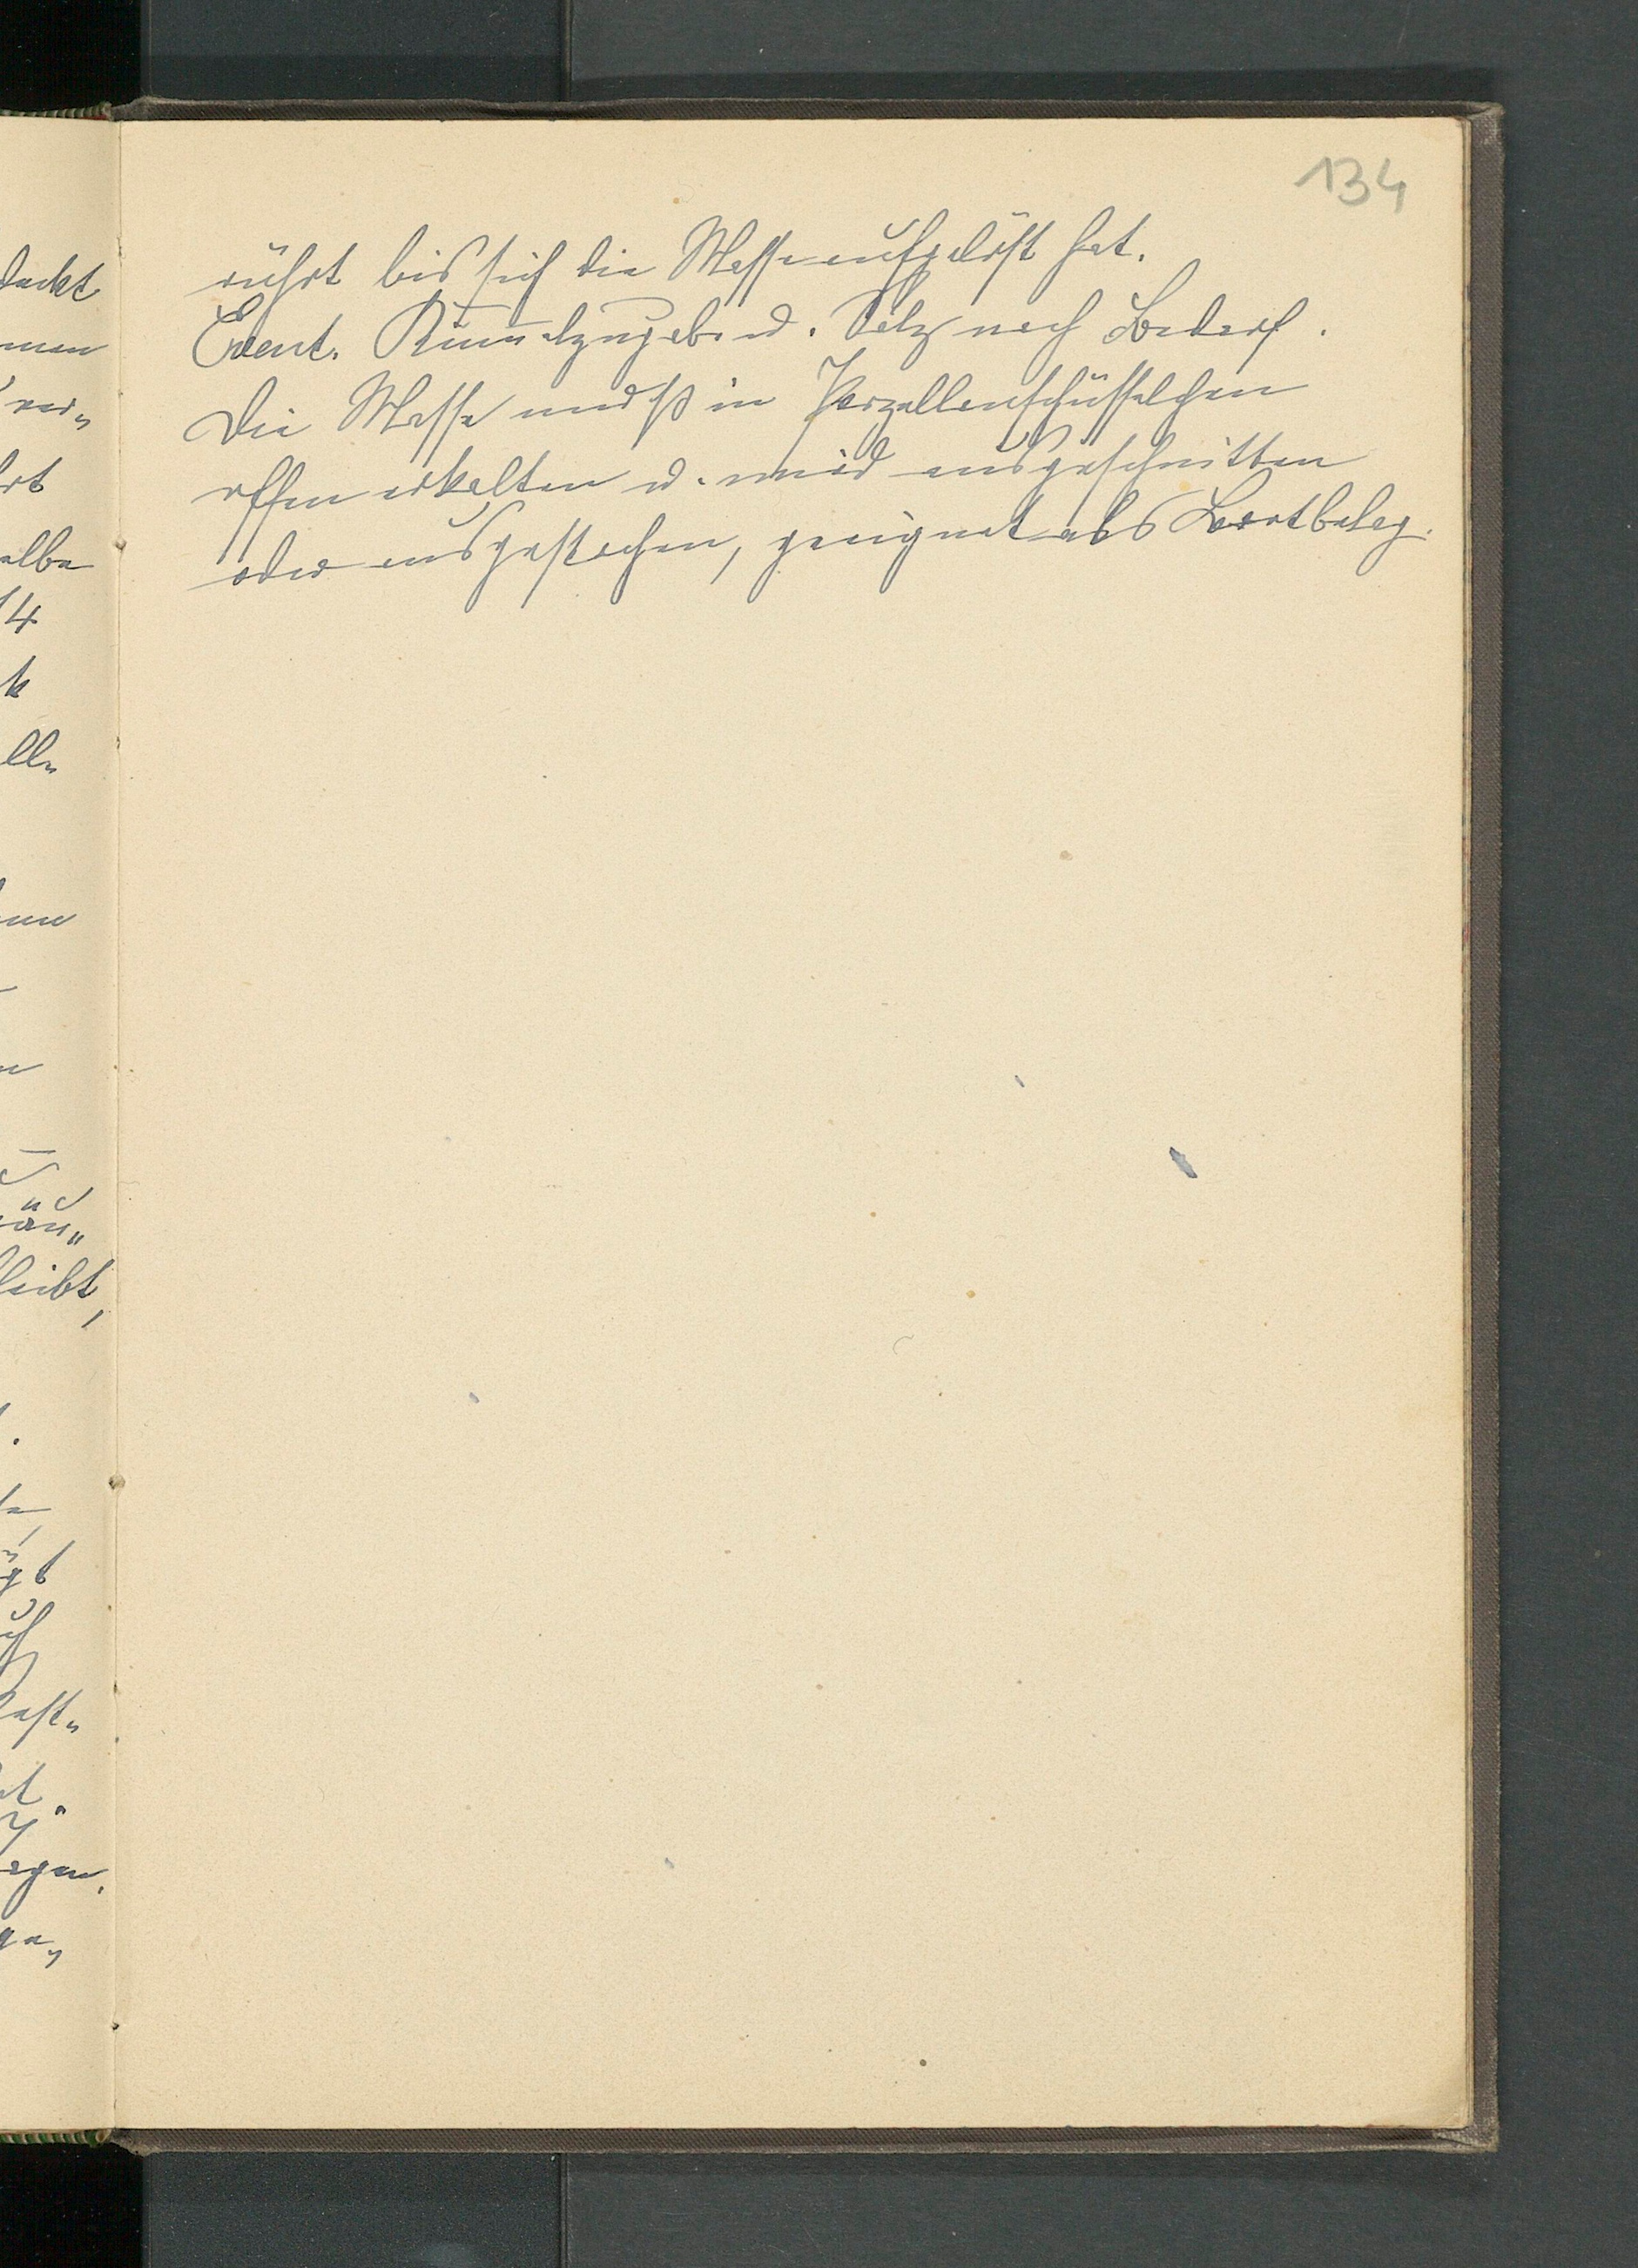 134
rührt bis sich die Masse aufgelöst hat.
Event. Kümmelzugabe u. Salz nach Bedarf.
Die Masse muß in Porzellanschüsselchen
offen erkalten u. wird ausgeschnitten
oder ausgestochen, geeignet als Brotbelag.